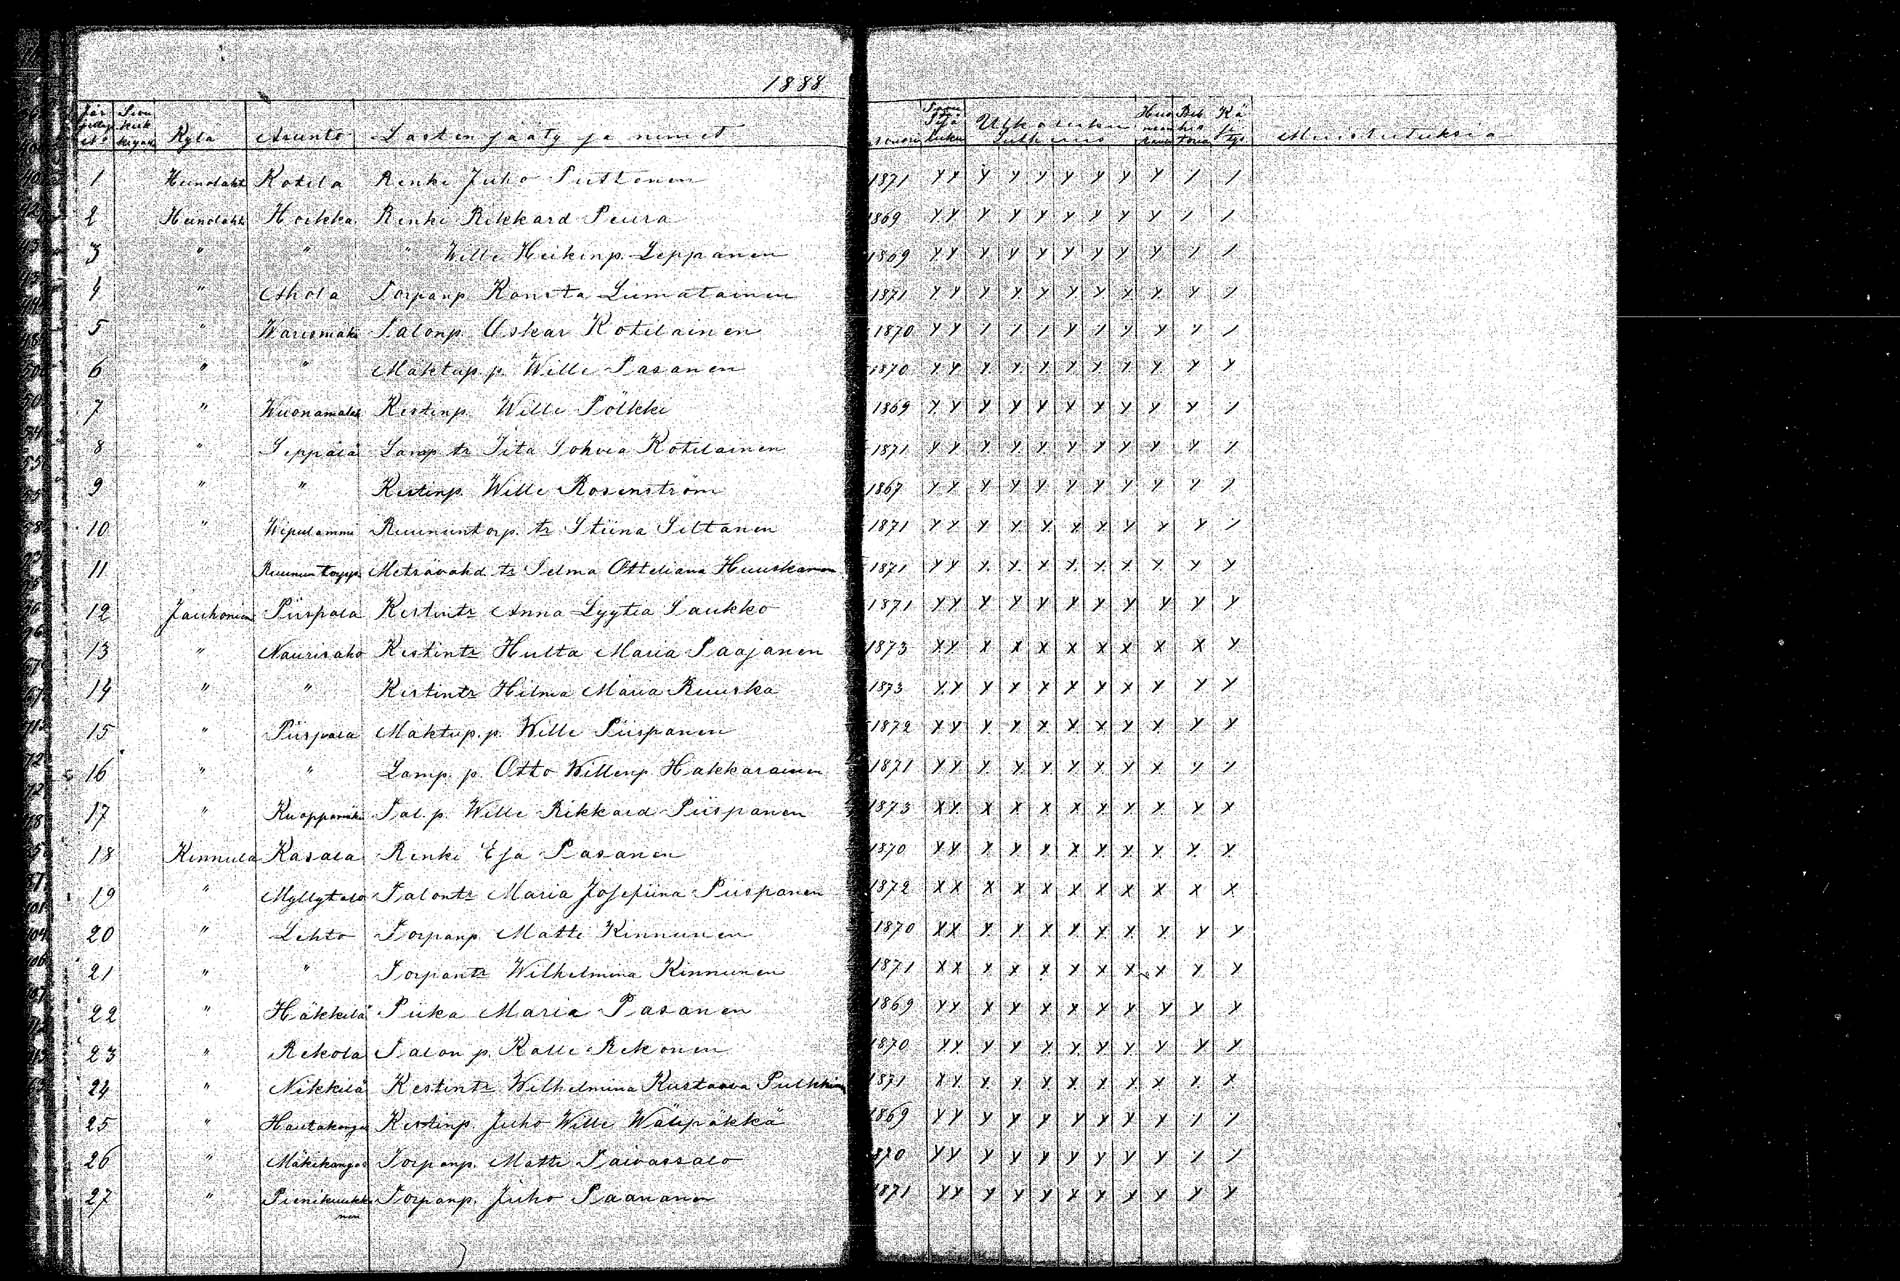 1888
Kylä Asunto Lasten sääty ja nimet Ulkoluku Muistutuksia
1 Heinolaht Kotila Renki Juho Puttonen 1871
2 Heinolaht Hoikka Renki Rikkard Peura 1869
3 " " " Wille Heikinp. Leppänen 1869
4 " Ahola Torpanp Konsta Liimatainen 1871
5 " Warismäki Talonp. Oskar Kotilainen 1870
6 " " Mäktup. p. Wille Pasanen 1870
7 " Wuonamäki Kestinp. Wille Pölkki 1869
8 " Seppälä Lamp. tr Iita Sohvia Kotilainen 1871
9 " " Kestinp. Wille Rosenström 1867
10 " Wipulammi Ruununtorp. tr Stiina Siltanen 1871
11 Ruunun torppa Metsävahd. tr Selma Otteliana Huuskonen 1871
12 Jauhonien Piispala Kestintr Anna Lyytia Laukko 1871
13 " Naurisaho Kestintr Hulta Maria Paajanen 1873
14 " " Kestintr Hilma Maria Ruuska 1873
15 " Piispala Mäktup. p. Wille Piispanen 1872
16 " " Lamp. p. Otto Willenp Hakkarainen 1871
17 " Kuoppamäki Tal. p. Wille Rikkard Piispanen 1873
18 Kinnula Kasala Renki Eja Pasanen 1870
19 " Myllytalo Talontr Maria Josefiina Piispanen 1872
20 " Lehto Torpanp. Matti Kinnunen 1870
21 " " Torpantr Wilhelmina Kinnunen 1871
22 " Häkkilä Piika Maria Pasanen 1869
23 " Rekola Talon p. Kalle Rekonen 1870
24 " Nikkilä Kestintr Wilhelmina Kustaava Pulkkin 1871
25 " Hautakangas Kestinp. Juho Wille Wälipäkkä 1869
26 " Mäkikangas Torpanp. Matti Taivassalo 1870
27 " Pienikuukka Torpanp. Juho Paananen 1871
nen